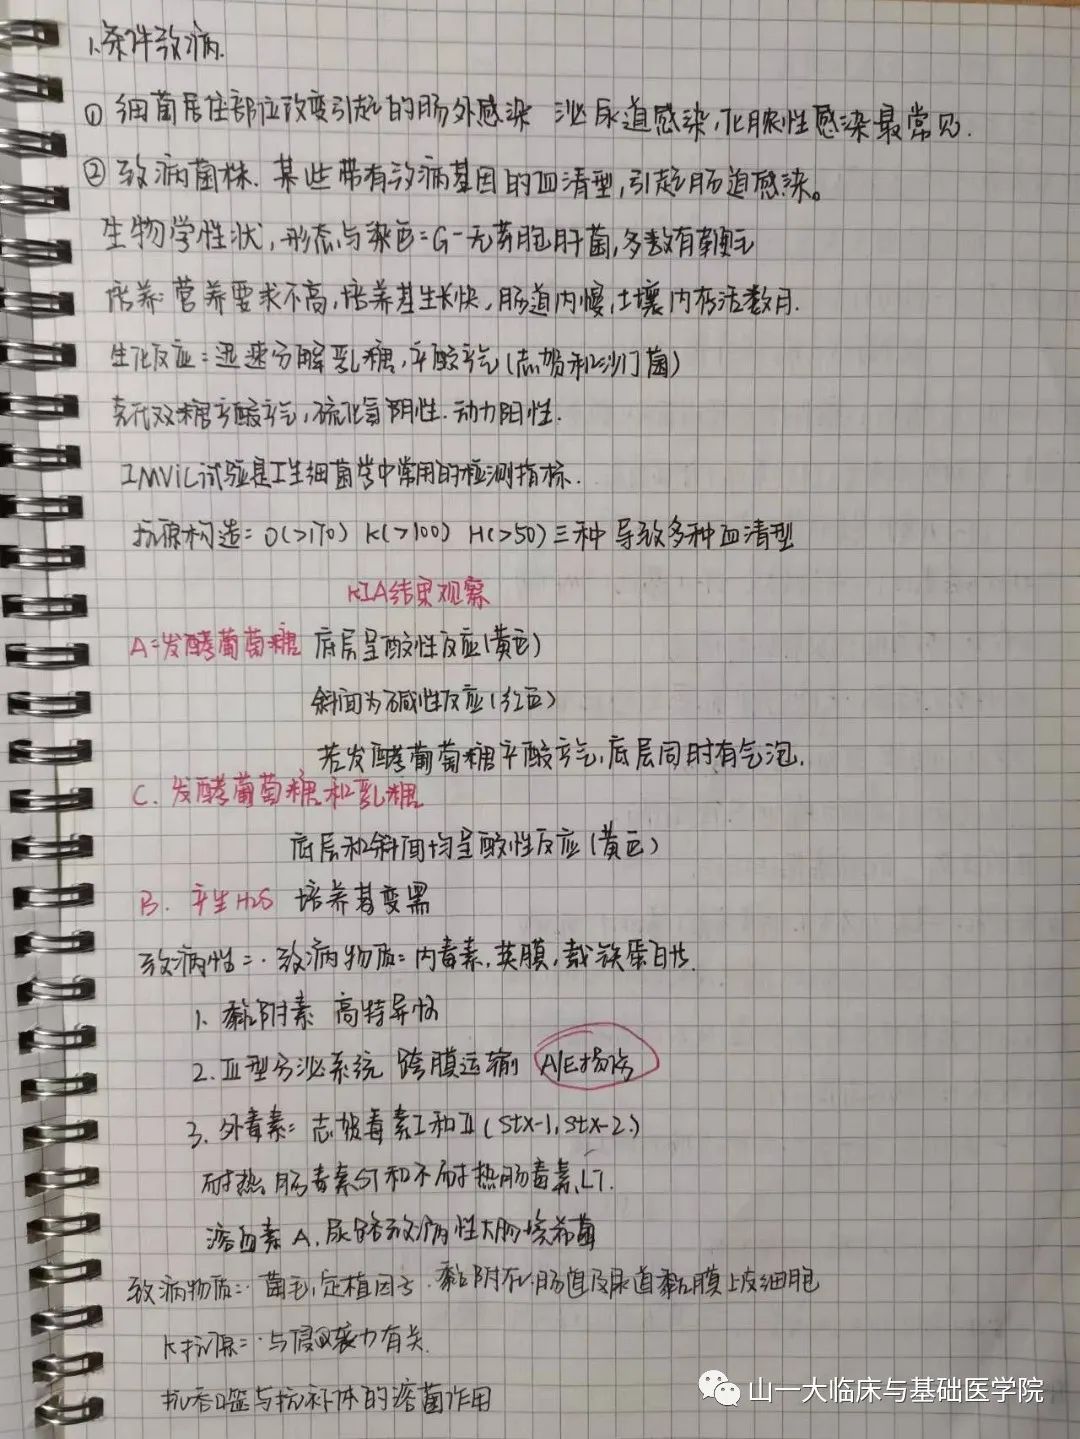 1.条件致病.
① 细菌居住部位改变引起的肠外感染 泌尿道感染,化脓性感染最常见.
② 致病菌株. 某些带有致病基因的血清型,引起肠道感染。
生物学性状,形态与染色:G-无芽胞杆菌,多数有鞭毛
培养:营养要求不高,培养基生长快,肠道内慢,土壤内存活数月.
生化反应:迅速分解乳糖,产酸产气(志贺和沙门菌)
克氏双糖产酸产气,硫化氢阴性.动力阳性.
IMViC试验是卫生细菌学中常用的检测指标.
抗原构造:O(>170) K(>100) H(>50)三种 导致多种血清型
KIA结果观察
A:发酵葡萄糖 底层呈酸性反应(黄色)
斜面为碱性反应(红色)
若发酵葡萄糖产酸产气,底层同时有气泡.
C. 发酵葡萄糖和乳糖
底层和斜面均呈酸性反应(黄色)
B. 产生H2S 培养基变黑
致病性:·致病物质:内毒素,荚膜,载铁蛋白性.
1. 黏附素 高特异性
2. III型分泌系统 跨膜运输 A/E损伤
3. 外毒素:志贺毒素I和II(Stx-1,Stx-2)
耐热肠毒素ST和不耐热肠毒素LT.
溶血素A.尿路致病性大肠埃希菌
致病物质:·菌毛,定植因子.黏附在肠道及尿道黏膜上皮细胞
K抗原:·与侵袭力有关.
抗吞噬与抗补体的溶菌作用
山一大临床与基础医学院